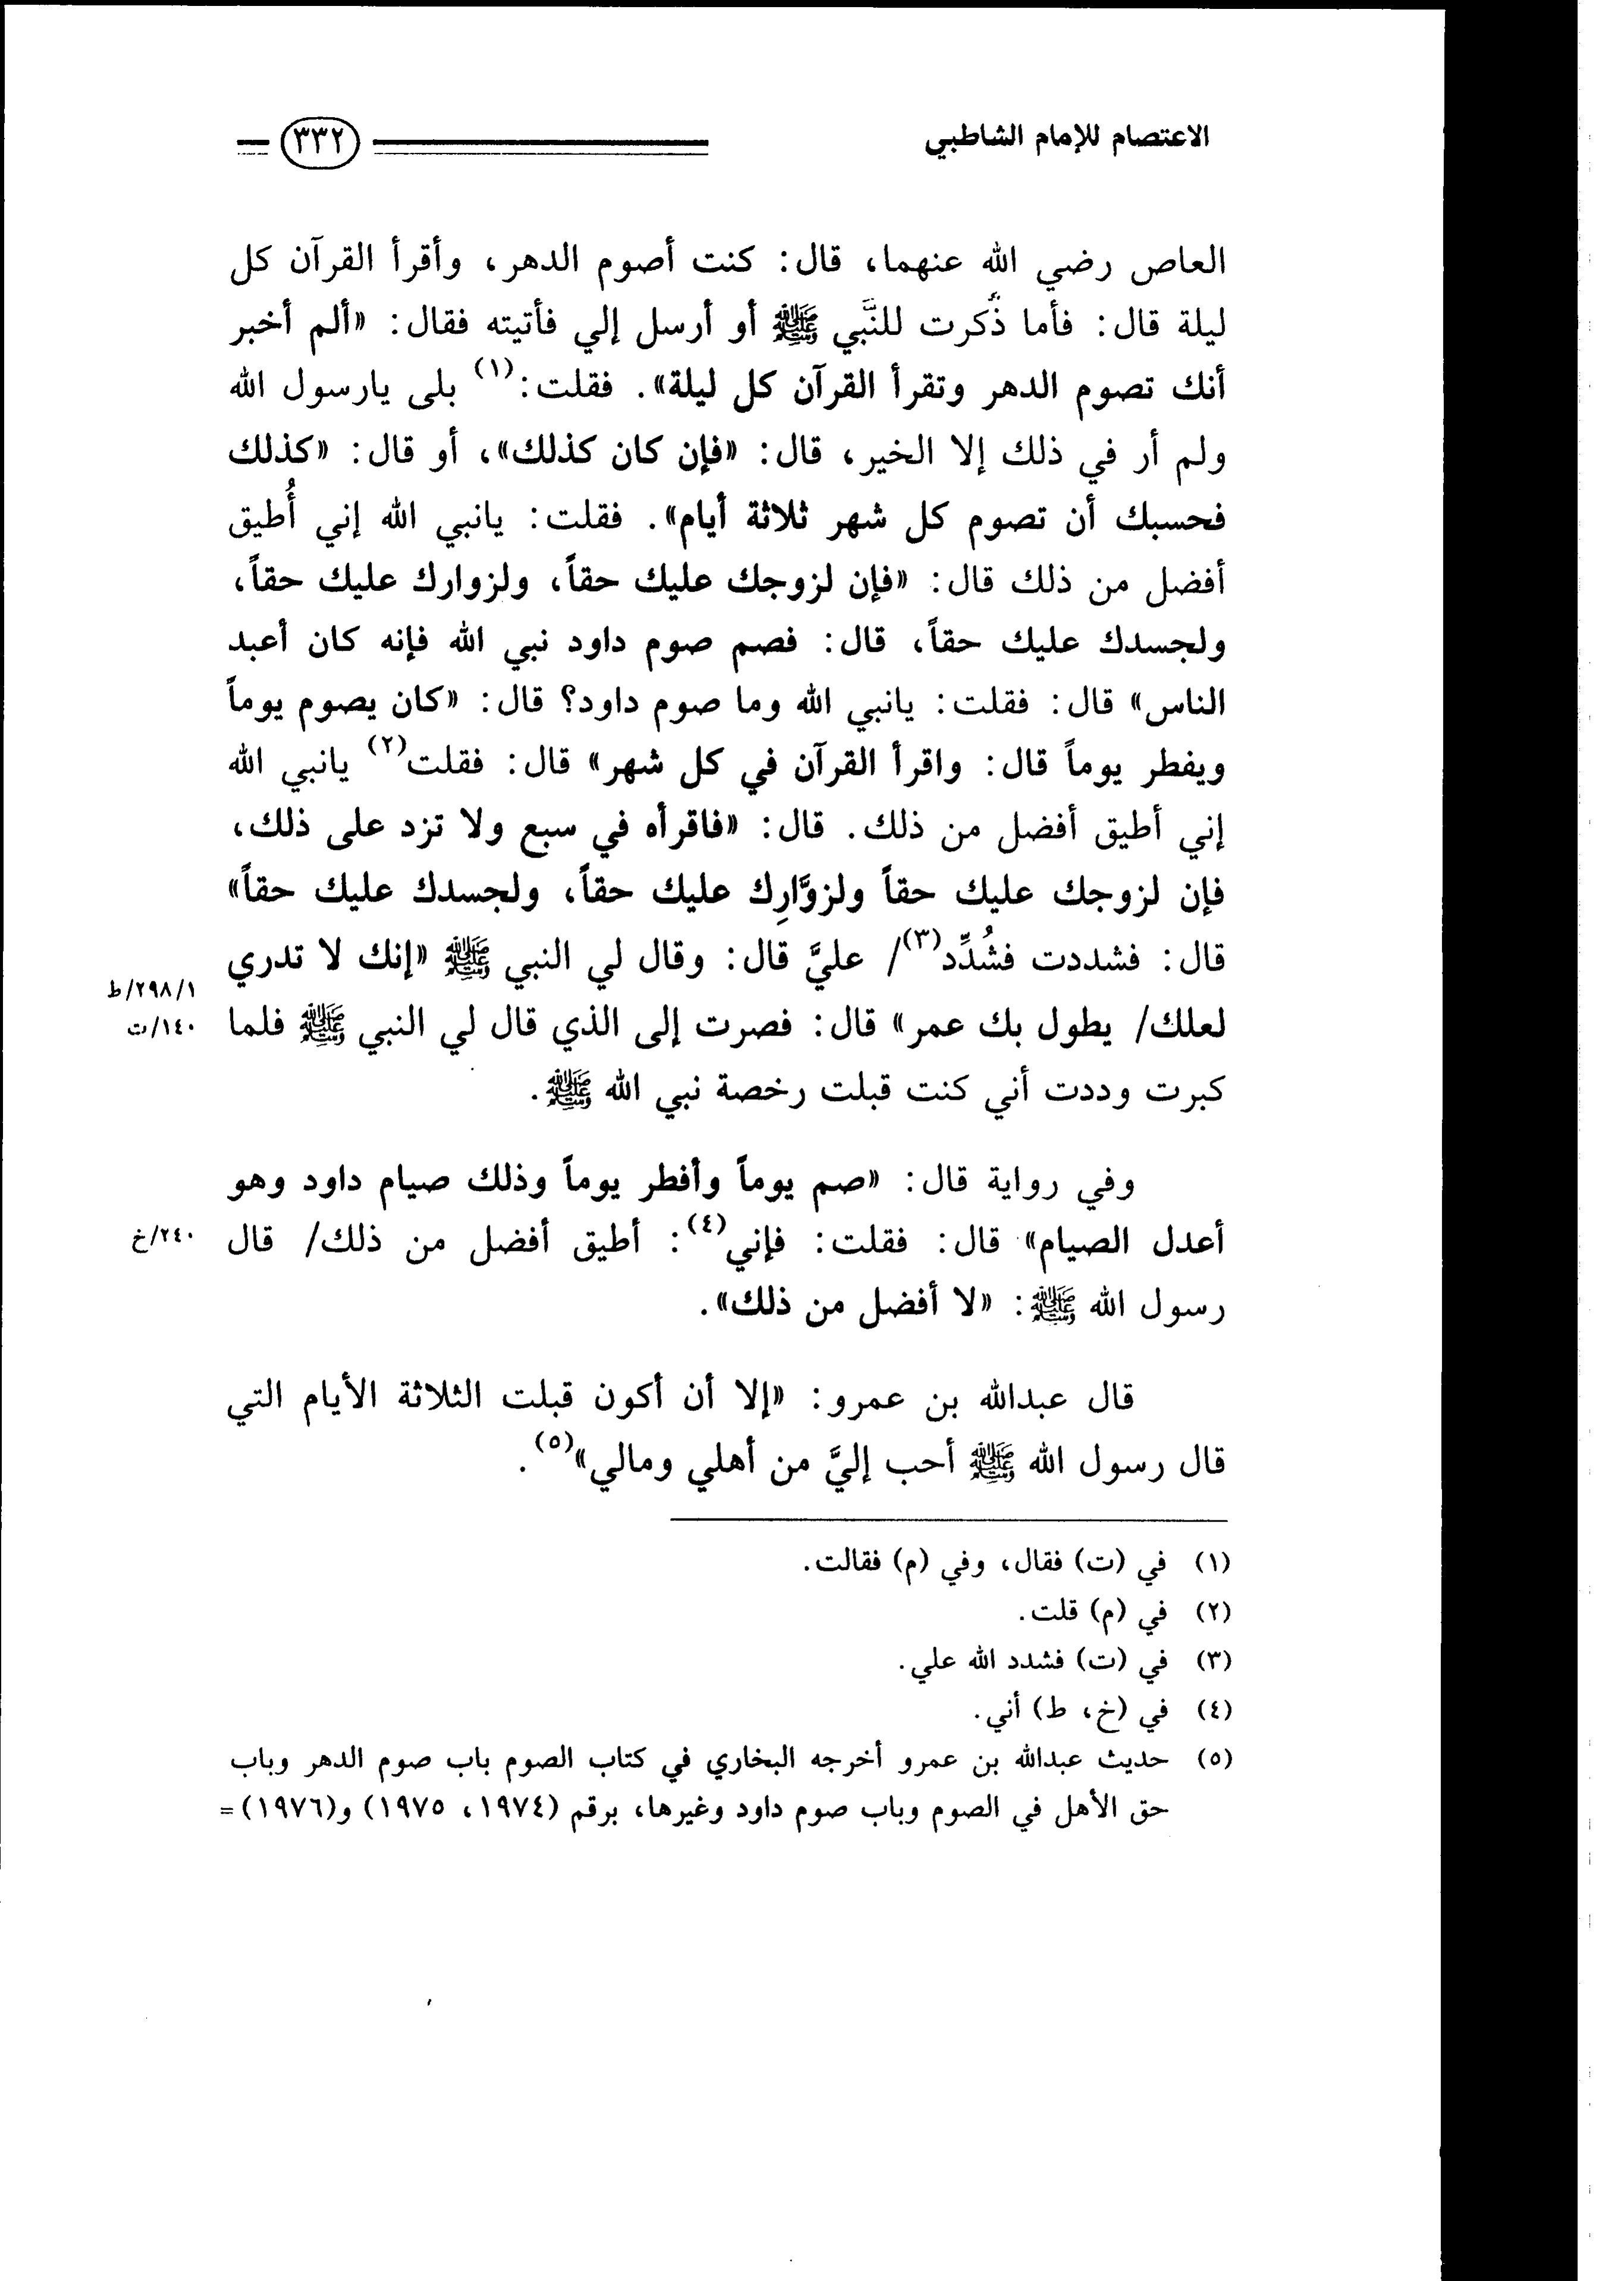 الاعتصام للإمام الشاطبي ٣٣٢
العاص رضي الله عنهما، قال: كنت أصوم الدهر، وأقرأ القرآن كل
ليلة قال: فأما ذُكرت للنَّبي ﷺ أو أرسل إلي فأتيته فقال: «ألم أخبر
أنك تصوم الدهر وتقرأ القرآن كل ليلة». فقلت:(١) بلى يارسول الله
ولم أر في ذلك إلا الخير، قال: «فإن كان كذلك»، أو قال: «كذلك
فحسبك أن تصوم كل شهر ثلاثة أيام». فقلت: يانبي الله إني أُطيق
أفضل من ذلك قال: «فإن لزوجك عليك حقاً، ولزوارك عليك حقاً،
ولجسدك عليك حقاً، قال: فصم صوم داود نبي الله فإنه كان أعبد
الناس» قال: فقلت: يانبي الله وما صوم داود؟ قال: «كان يصوم يوماً
ويفطر يوماً قال: واقرأ القرآن في كل شهر» قال: فقلت(٢) يانبي الله
إني أطيق أفضل من ذلك. قال: «فاقرأه في سبع ولا تزد على ذلك،
فإن لزوجك عليك حقاً ولزوَّارِك عليك حقاً، ولجسدك عليك حقاً»
قال: فشددت فشُدِّد(٣)/ عليَّ قال: وقال لي النبي ﷺ «إنك لا تدري
١/٢٩٨/ط
لعلك/ يطول بك عمر» قال: فصرت إلى الذي قال لي النبي ﷺ فلما
١٤٠/ت
كبرت وددت أني كنت قبلت رخصة نبي الله ﷺ.
وفي رواية قال: «صم يوماً وأفطر يوماً وذلك صيام داود وهو
أعدل الصيام» قال: فقلت: فإني(٤): أطيق أفضل من ذلك/ قال
٢٤٠/خ
رسول الله ﷺ: «لا أفضل من ذلك».
قال عبدالله بن عمرو: «إلا أن أكون قبلت الثلاثة الأيام التي
قال رسول الله ﷺ أحب إليَّ من أهلي ومالي»(٥).
(١) في (ت) فقال، وفي (م) فقالت.
(٢) في (م) قلت.
(٣) في (ت) فشدد الله علي.
(٤) في (خ، ط) أني.
(٥) حديث عبدالله بن عمرو أخرجه البخاري في كتاب الصوم باب صوم الدهر وباب
حق الأهل في الصوم وباب صوم داود وغيرها، برقم (١٩٧٤، ١٩٧٥) و(١٩٧٦)=